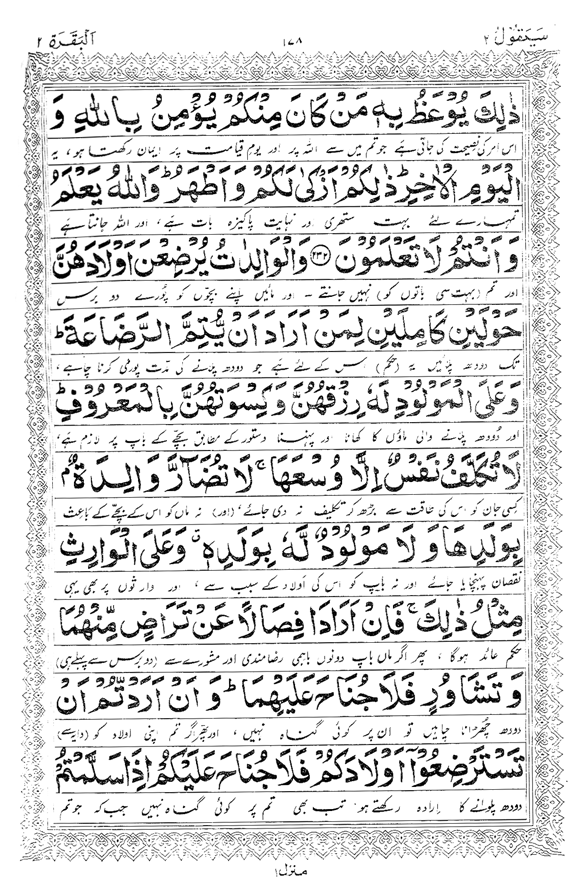 سَيَقُوْلُ ٢ ١٧٨ اَلْبَقَرَة ٢
ذٰلِكَ يُوْعَظُ بِهٖ مَنْ كَانَ مِنْكُمْ يُؤْمِنُ بِاللّٰهِ وَ
اس امر کی نصیحت کی جاتی ہے جو تم میں سے اللہ پر اور یوم قیامت پر ایمان رکھتا ہو، یہ
الْيَوْمِ الْاٰخِرِ ؕ ذٰلِكُمْ اَزْكٰى لَكُمْ وَاَطْهَرُ ؕ وَاللّٰهُ يَعْلَمُ
تمہارے لئے بہت ستھری اور نہایت پاکیزہ بات ہے، اور اللہ جانتا ہے
وَاَنْتُمْ لَا تَعْلَمُوْنَ ﴿٢٣٢﴾ وَالْوَالِدٰتُ يُرْضِعْنَ اَوْلَادَهُنَّ
اور تم (بہت سی باتوں کو) نہیں جانتے ۔ اور مائیں اپنے بچّوں کو پُورے دو برس
حَوْلَيْنِ كَامِلَيْنِ لِمَنْ اَرَادَ اَنْ يُّتِمَّ الرَّضَاعَةَ ؕ
تک دودھ پلائیں یہ (حکم) اس کے لئے ہے جو دودھ پلانے کی مدّت پوری کرنا چاہے،
وَعَلَى الْمَوْلُوْدِ لَهٗ رِزْقُهُنَّ وَكِسْوَتُهُنَّ بِالْمَعْرُوْفِ ؕ
اور دُودھ پلانے والی ماؤں کا کھانا اور پہننا دستور کے مطابق بچّے کے باپ پر لازم ہے،
لَا تُكَلَّفُ نَفْسٌ اِلَّا وُسْعَهَا ۚ لَا تُضَآرَّ وَالِدَةٌۢ
کسی جان کو اس کی طاقت سے بڑھ کر تکلیف نہ دی جائے، (اور) نہ ماں کو اس کے بچّے کے باعث
بِوَلَدِهَا وَلَا مَوْلُوْدٌ لَّهٗ بِوَلَدِهٖ ۗ وَعَلَى الْوَارِثِ
نقصان پہنچایا جائے اور نہ باپ کو اس کی اَولاد کے سبب سے، اور وارثوں پر بھی یہی
مِثْلُ ذٰلِكَ ۚ فَاِنْ اَرَادَا فِصَالًا عَنْ تَرَاضٍ مِّنْهُمَا
حکم عائد ہوگا، پھر اگر ماں باپ دونوں باہمی رضامندی اور مشورے سے (دو برس سے پہلے ہی)
وَتَشَاوُرٍ فَلَا جُنَاحَ عَلَيْهِمَا ؕ وَاِنْ اَرَدْتُّمْ اَنْ
دودھ چُھڑانا چاہیں تو ان پر کوئی گناہ نہیں، اور پھر اگر تم اپنی اولاد کو (دایہ سے)
تَسْتَرْضِعُوْٓا اَوْلَادَكُمْ فَلَا جُنَاحَ عَلَيْكُمْ اِذَا سَلَّمْتُمْ
دودھ پلوانے کا اِرادہ رکھتے ہو تب بھی تم پر کوئی گناہ نہیں جب کہ جو تم
منزل ١